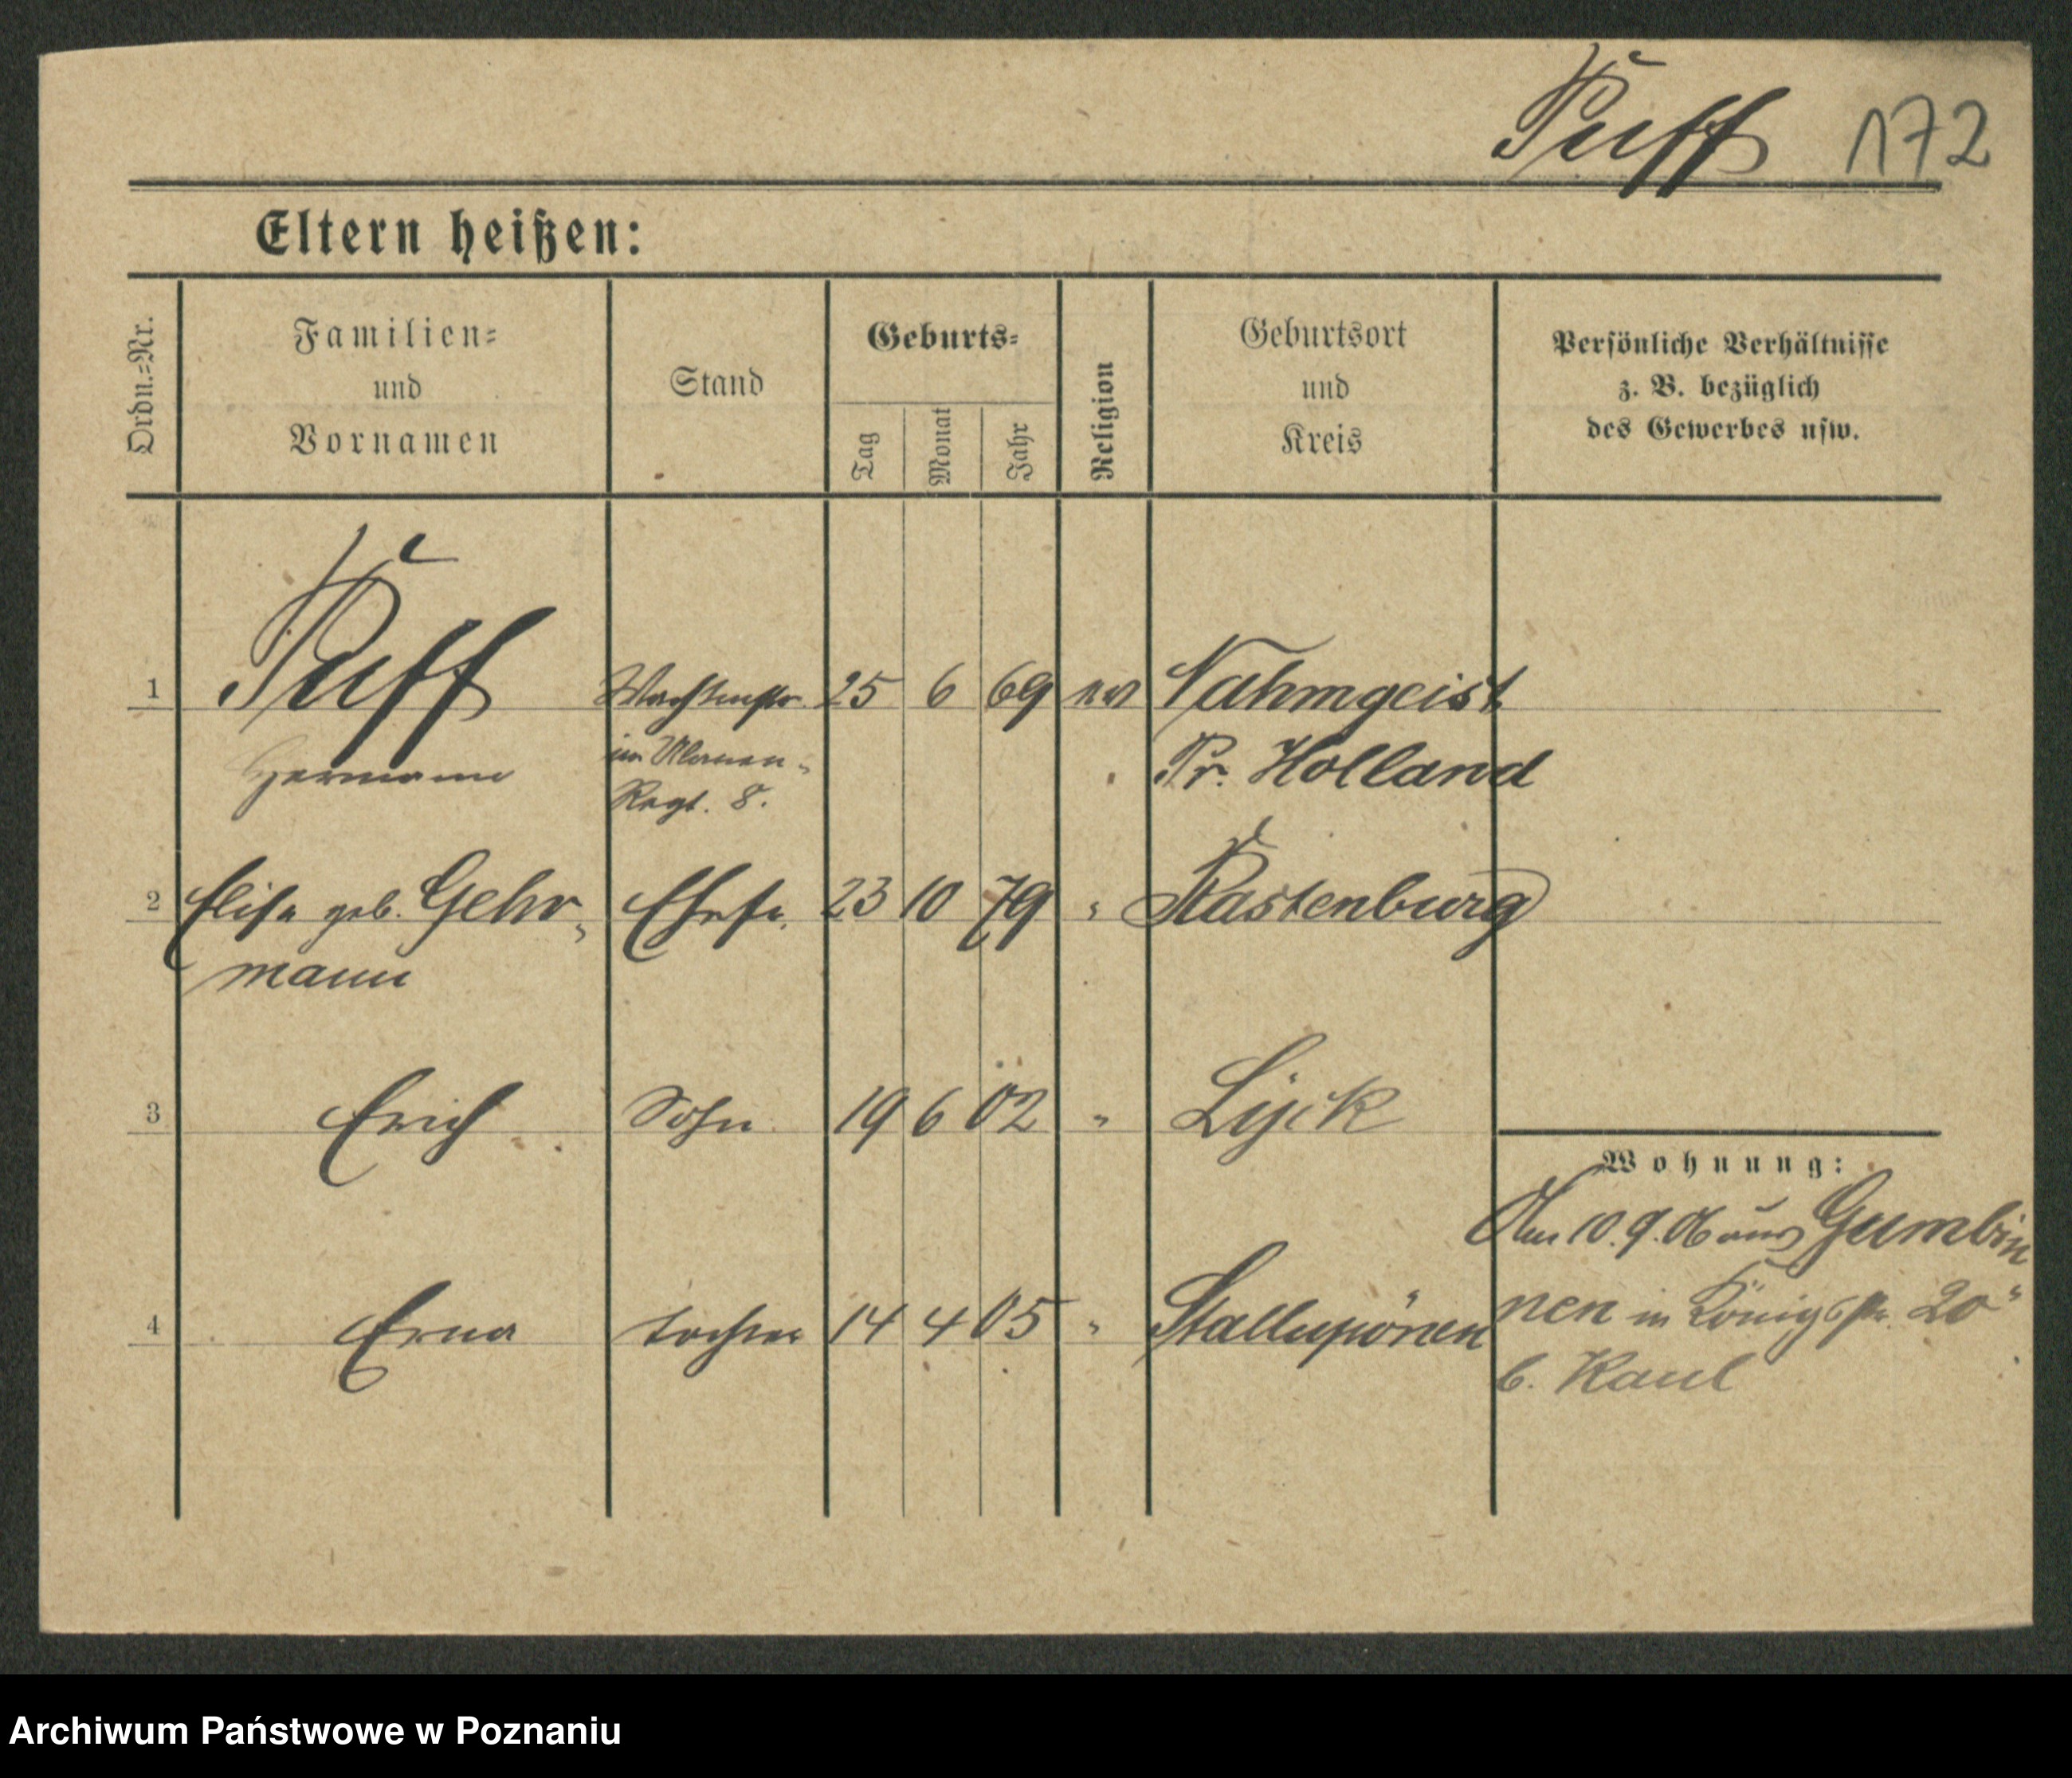 Puff 172
Eltern heißen:
Ordn.-Nr. Familien- und Vornamen Stand Geburts- Tag Monat Jahr Religion Geburtsort und Kreis Persönliche Verhältnisse z. B. bezüglich des Gewerbes usw.
1 Puff Wachtmstr. 25 6 69 ev Nahmgeist
Hermann im Ulanen- Pr. Holland
Regt. 8.
2 Elise geb. Gehr- Ehefr. 23 10 79 " Rastenburg
mann
3 Erich Sohn 19 6 02 " Lyck
Wohnung:
Am 10. 9. 06 aus Gumbin
4 Erna Tochter 14 4 05 " Stallupönen nen in Königstr. 20
b. Kaul
Archiwum Państwowe w Poznaniu